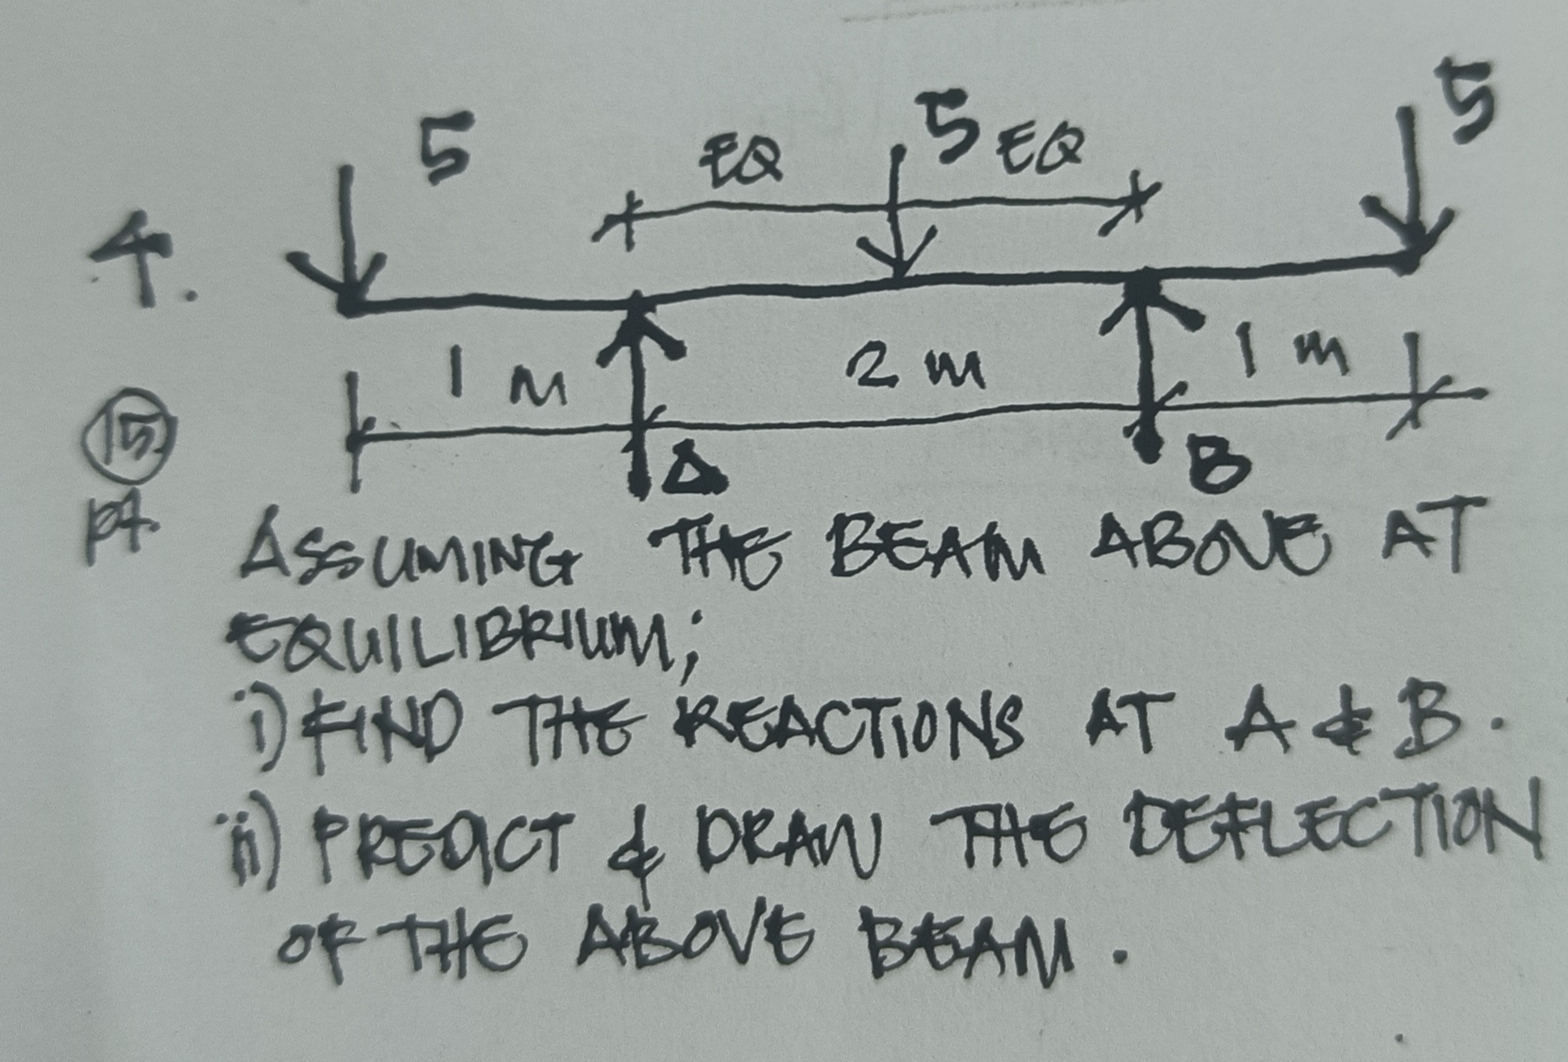 5
EQ 5 EQ
5
4.
1 M 2 m 1 m
A B
15
pt.
ASSUMING THE BEAM ABOVE AT
EQUILIBRIUM;
i) FIND THE REACTIONS AT A & B.
ii) PREDICT & DRAW THE DEFLECTION
OF THE ABOVE BEAM.